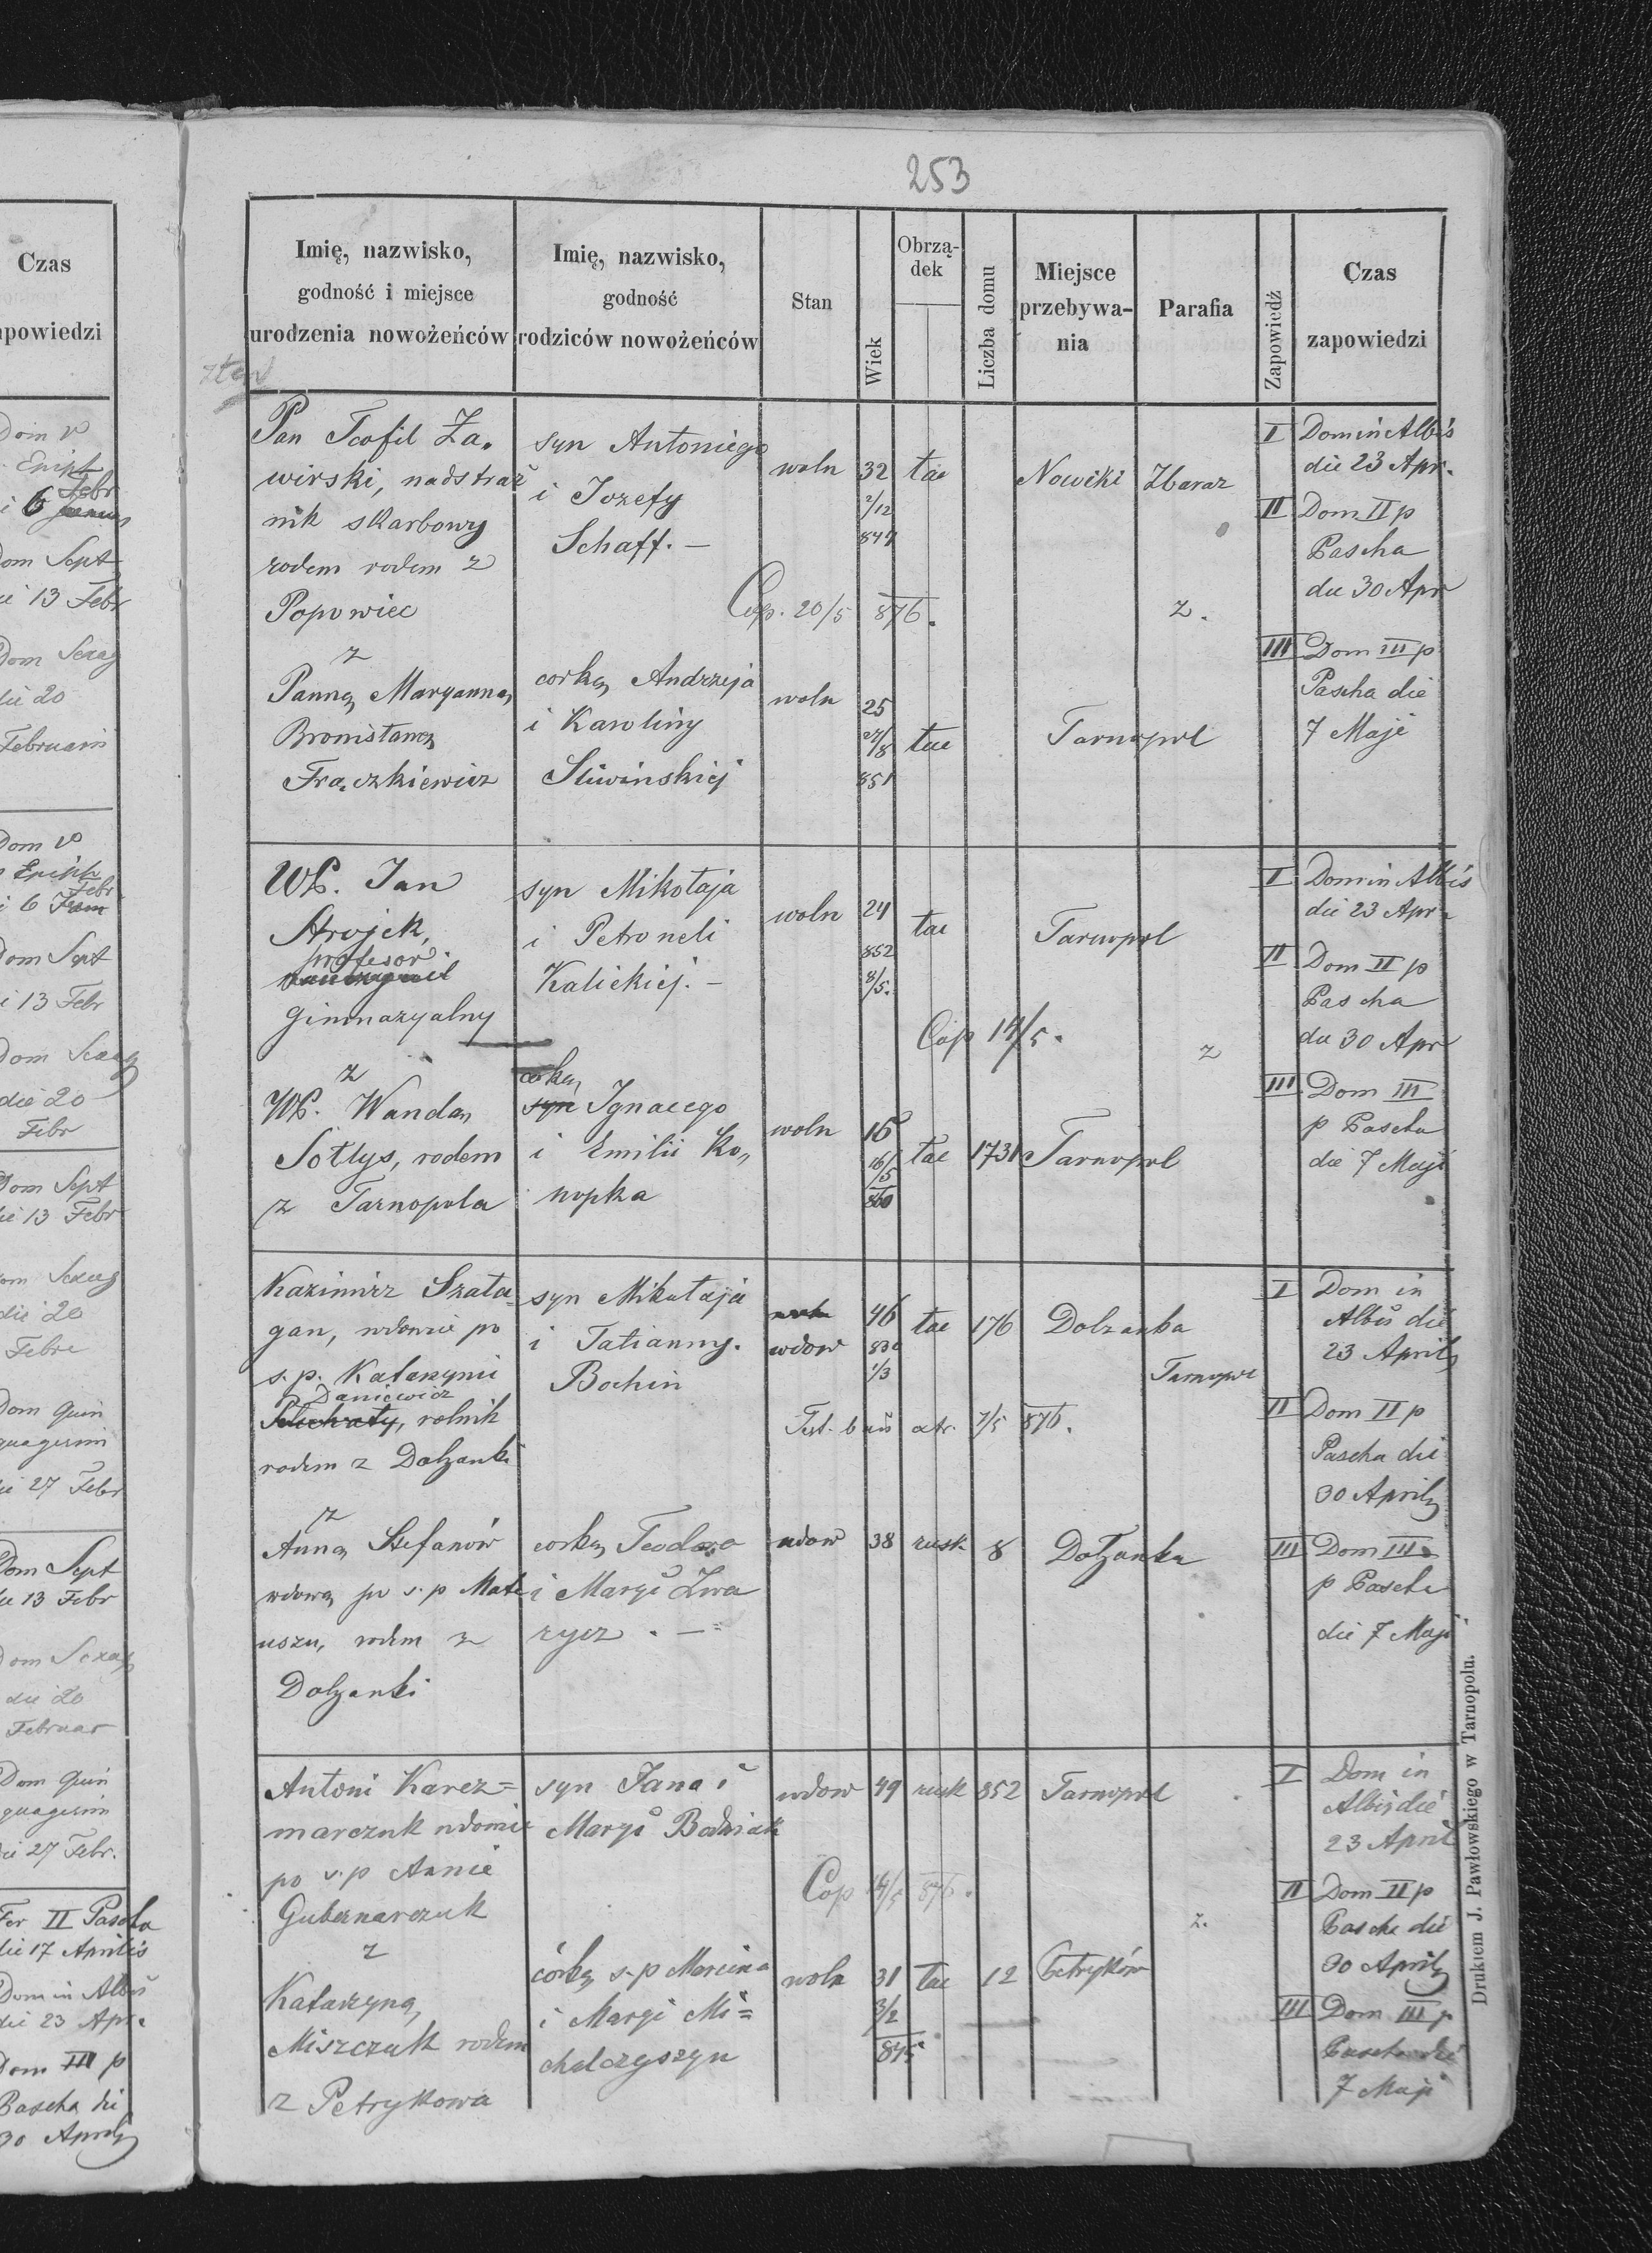 253
Imię, nazwisko,
godność i miejsce
urodzenia nowożeńców
Imię, nazwisko,
godność
rodziców nowożeńców
Stan
Wiek
Obrzą-
dek
Liczba domu
Miejsce
przebywa-
nia
Parafia
Zapowiedź
Czas
zapowiedzi
Pan Teofil Za„
wirski, nadstraż
nik skarbowy
rodem rodem z
Popowiec
z
Panną Maryanną
Bronisławą
Frączkiewicz
syn Antoniego
i Jozefy
Schaff. —
corką Andrzeja
i Karoliny
Sliwinskiej
woln 32 łac Nowiki Zbaraz
2/12
847
Cop. 20/5 876.
z.
woln 25
27/8 łac Tarnopol
851
I Dom in Albis
die 23 Apr.
II Dom II p
Pascha
die 30 Apr
III Dom III p
Pascha die
7 Maji
WP. Jan
Strojek,
profesor
gimnazyalny
z
WP. Wandą
Sołtys, rodem
z Tarnopola
syn Mikołaja
i Petroneli
Kalickiej. —
corką
syn Ignacego
i Emilii Ko„
nopka
woln 24 łac Tarnopol
852
8/5.
Cop 14/5.
z
woln 16 łac 1731 Tarnopol
16/5
860
I Dom in Albis
die 23 Apr.
II Dom II p
Pascha
die 30 Apr
III Dom III
p Pascha
die 7 Maji
Kazimirz Szata=
gan, wdowiec po
s. p. Katarzynie
Daniewicz
rolnik
rodem z Dolzanki
z
Anną Stefanów
wdową po s. p Mate
uszu, rodem z
Dolzanki
syn Mikołaja
i Tatianny.
Bochin
corką Teodora
i Maryi Zwa
rycz . —
woln
wdow 46 łac 176 Dolzanka
830
1/3
Tarnopol
Test. ban atr. 7/5 876.
wdow 38 rusk 8 Dolzanka
I Dom in
Albis die
23 Aprilis
II Dom II p
Pascha die
30 Aprilis
III Dom III
p Pascha
die 7 Maji
Antoni Karcz=
marczuk wdowiec
po s. p Annie
Gubernarczuk
z
Katarzyną
Miszczuk rodem
z Petrykowa
syn Jana i
Maryi Bodniak
córką s. p Marcina
i Maryi Mi=
chalczyszyn
wdow 49 rusk 852 Tarnopol
Cop 14/5 876.
z.
woln 31 łac 12 Petryków
3/2
845
I Dom in
Albis die
23 April
II Dom II p
Pascha die
30 Aprilis
III Dom III p
Pascha die
7 Maji
Drukiem J. Pawłowskiego w Tarnopolu.
Czas
apowiedzi
Dom V
Epiph
Febr
i 6
om Sept
ie 13 Febr
Dom Sexag
die 20
Februarii
Dom V
Epiph
Febr
i 6
Dom Sept
i 13 Febr
Dom Sexag
die 20
Febr
Dom Sept
ie 13 Febr
om Sexag
die 20
Febr
Dom Quin
quagesim
ie 27 Febr
Dom Sept
ie 13 Febr
Dom Sexag
die 20
Februar
Dom Quin
quagesim
die 27 Febr.
Fer II Pascha
die 17 Aprilis
Dom in Albis
die 23 Apr.
Dom III p
Pascha die
30 Aprilis